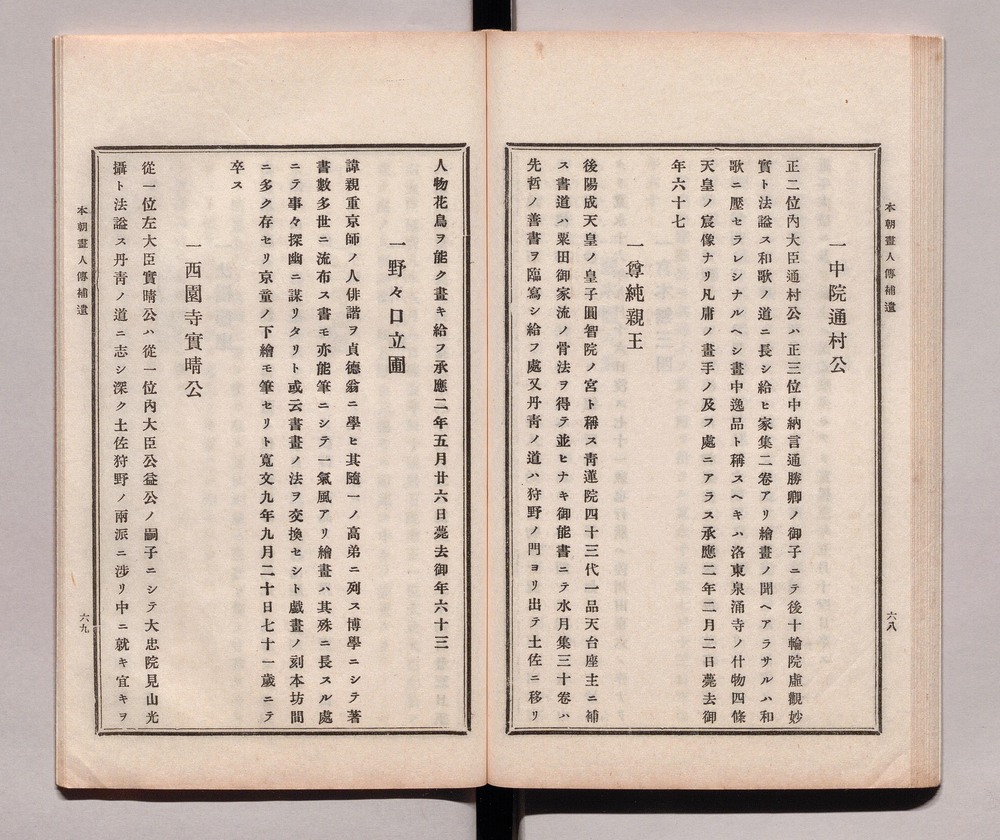 本朝畫人傳補遺
一中院通村公
正二位內大臣通村公ハ正三位中納言通勝卿ノ御子ニテ後十輪院虛觀妙
實ト法謚ス和歌ノ道ニ長シ給ヒ家集二卷アリ繪畫ノ聞ヘアラサルハ和
歌ニ壓セラレシナルヘシ畫中逸品ト稱スヘキハ洛東泉涌寺ノ什物四條
天皇ノ宸像ナリ凡庸ノ畫手ノ及フ處ニアラス承應二年二月二日薨去御
年六十七
一尊純親王
後陽成天皇ノ皇子圓智院ノ宮ト稱ス靑蓮院四十三代一品天台座主ニ補
ス書道ハ粟田御家流ノ骨法ヲ得テ並ヒナキ御能書ニテ水月集三十卷ハ
先哲ノ善書ヲ臨寫シ給フ處又丹靑ノ道ハ狩野ノ門ヨリ出テ土佐ニ移リ
六八
人物花鳥ヲ能ク畫キ給フ承應二年五月廿六日薨去御年六十三
一野々口立圃
諱親重京師ノ人俳諧ヲ貞德翁ニ學ヒ其隨一ノ高弟ニ列ス博學ニシテ著
書數多世ニ流布ス書モ亦能筆ニシテ一氣風アリ繪畫ハ其殊ニ長スル處
ニテ事々探幽ニ謀リタリト或云書畫ノ法ヲ交換セシト戲畫ノ刻本坊間
ニ多ク存セリ京童ノ下繪モ筆セリト寬文九年九月二十日七十一歲ニテ
卒ス
一西園寺實晴公
從一位左大臣實晴公ハ從一位內大臣公益公ノ嗣子ニシテ大忠院見山光
攝ト法謚ス丹靑ノ道ニ志シ深ク土佐狩野ノ兩派ニ涉リ中ニ就キ宜キヲ
本朝畫人傳補遺
六九